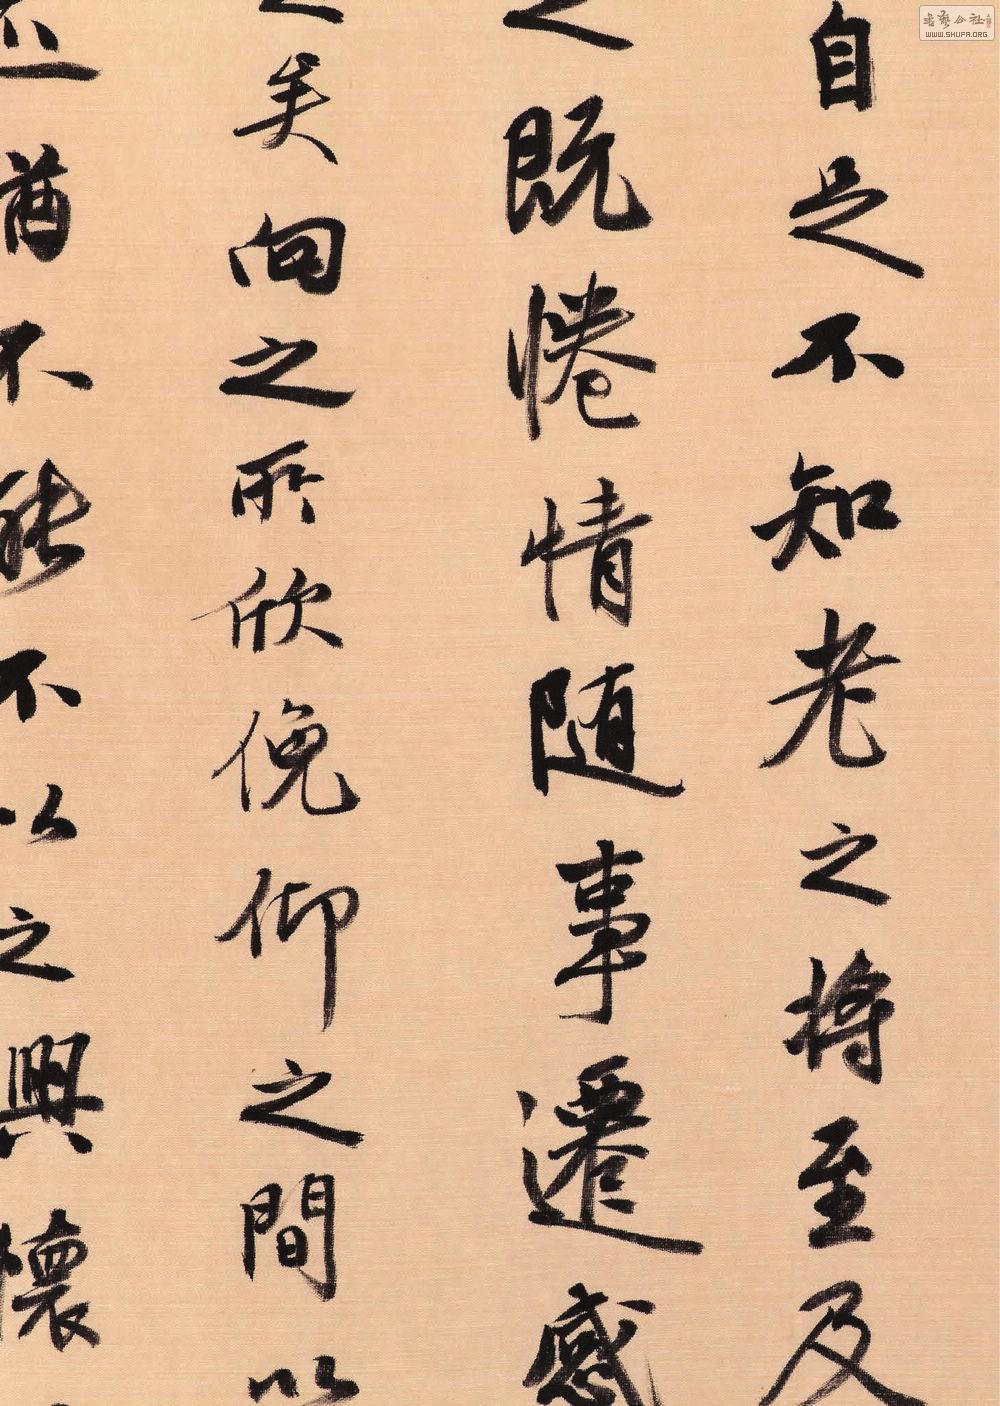 自足不知老之将至及
之既惓情随事遷感
之矣向之所欣俛仰之間以
迹猶不能不以之興懷
书艺公社
WWW.SHUFA.ORG